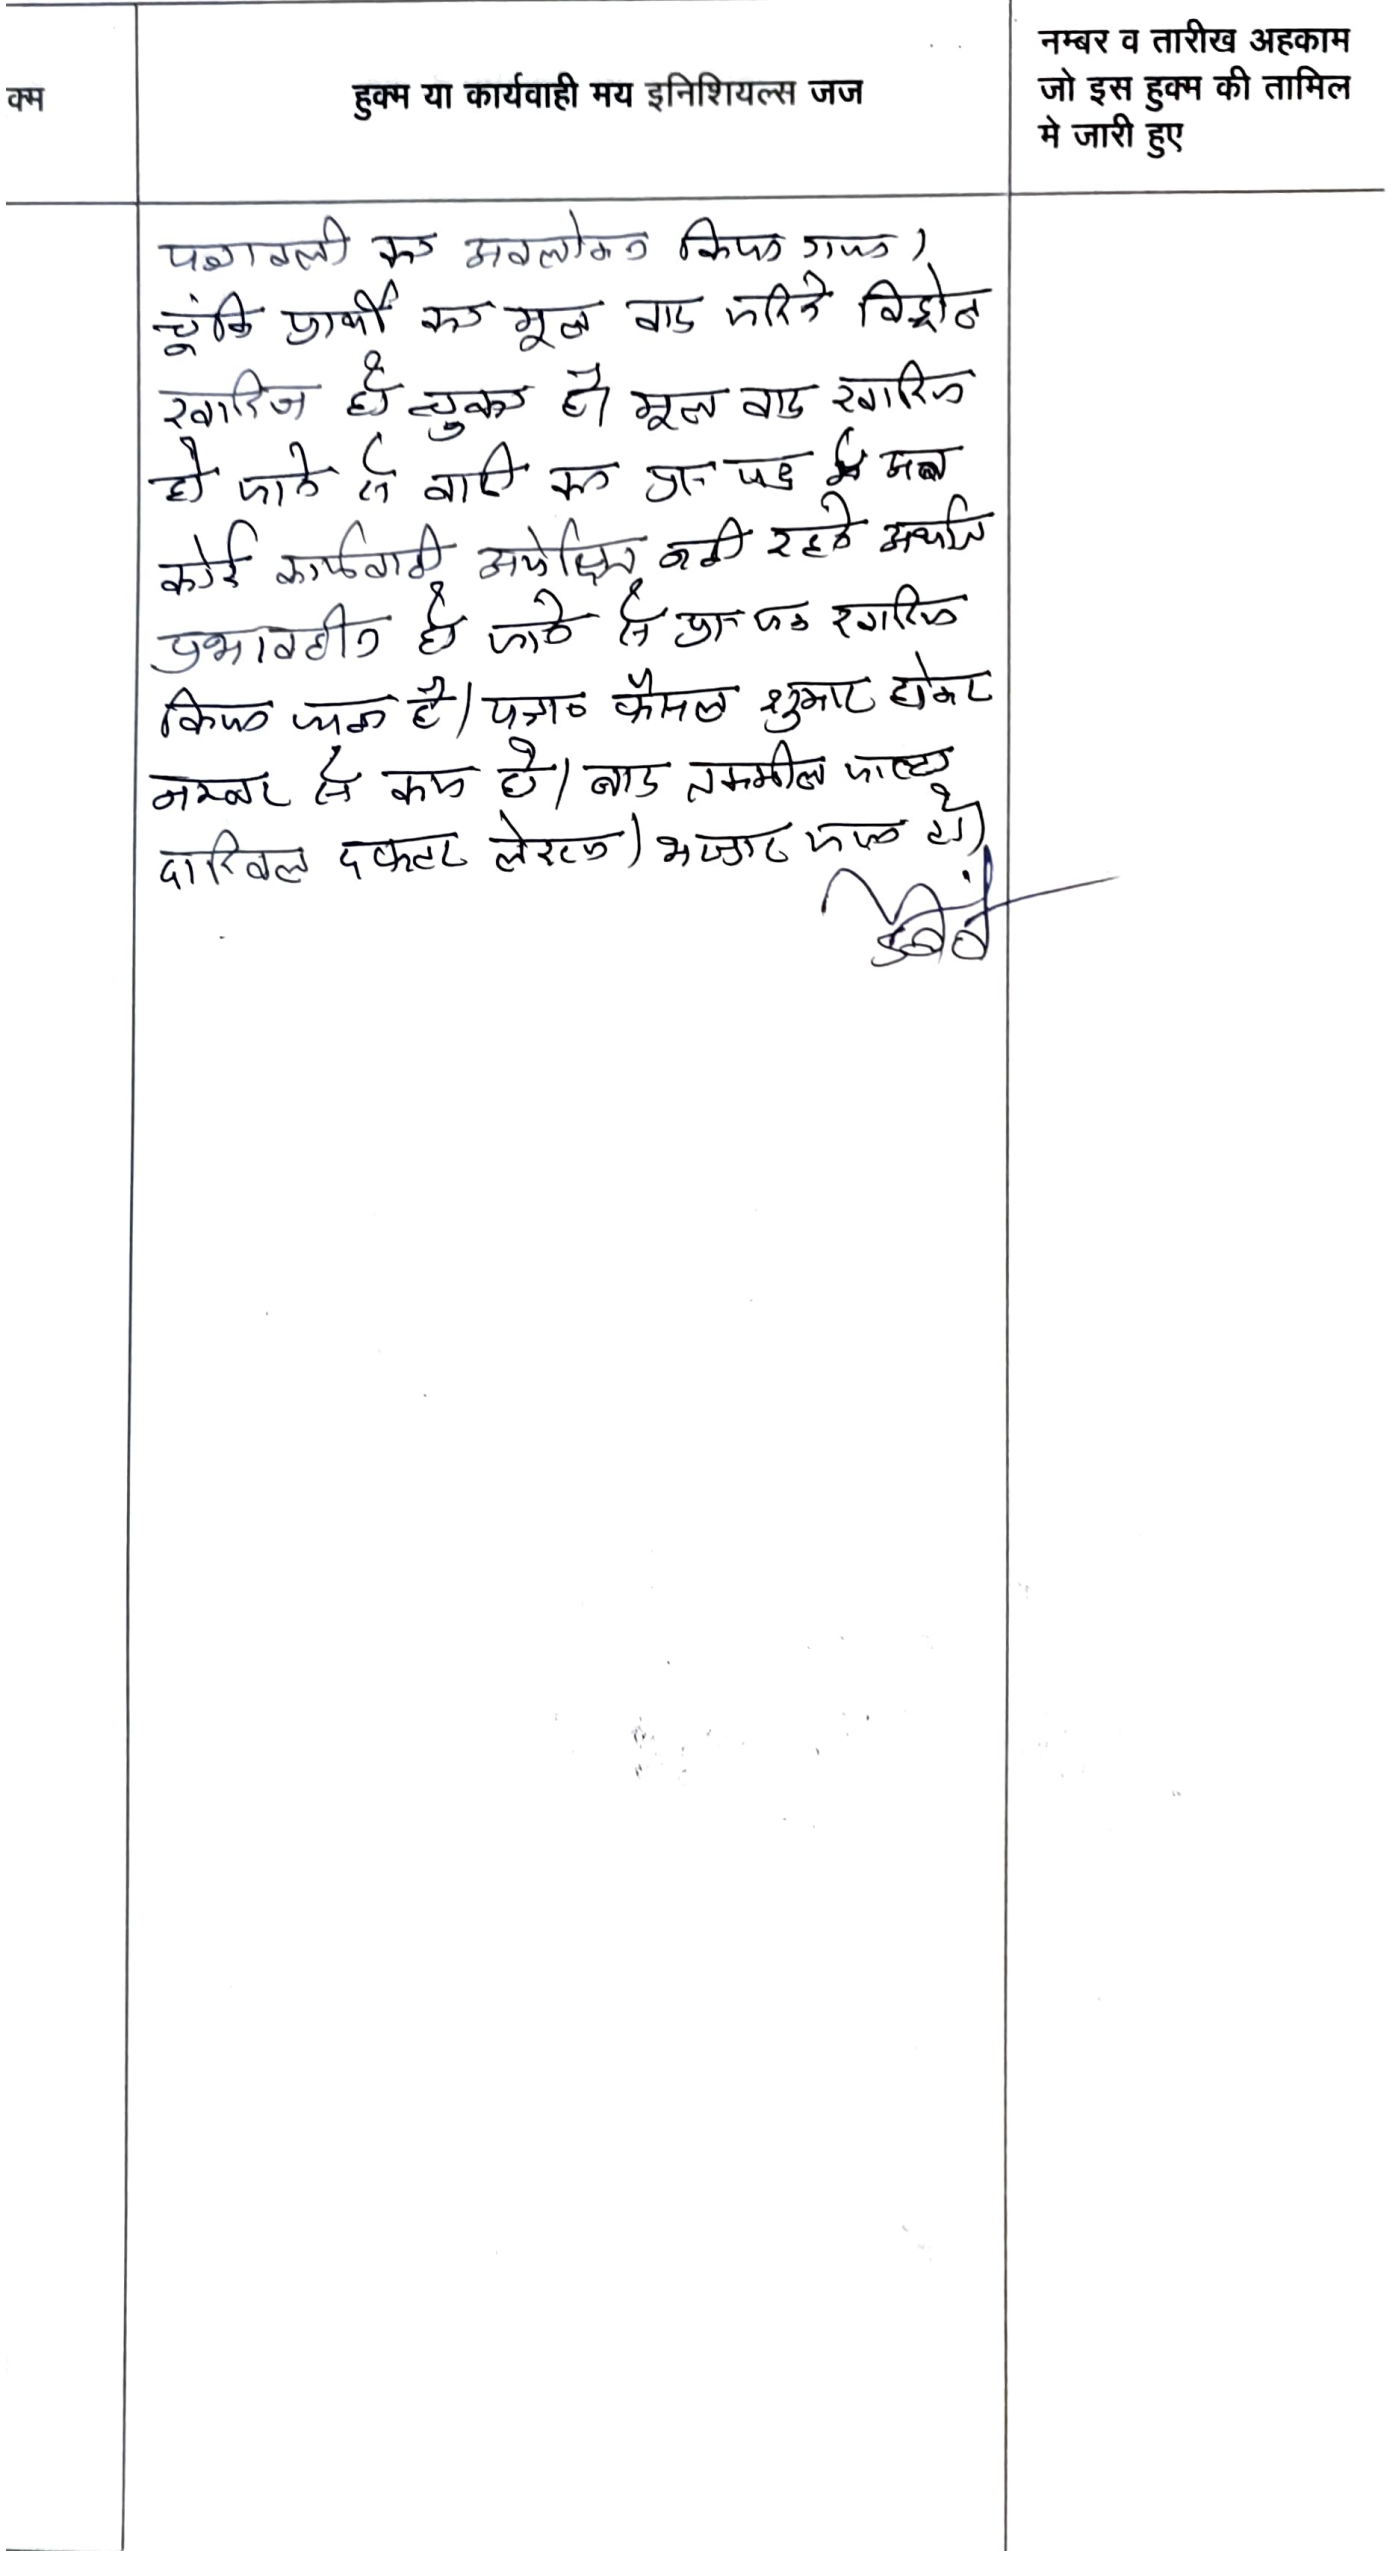 क्म
हुक्म या कार्यवाही मय इनिशियल्स जज
नम्बर व तारीख अहकाम
जो इस हुक्म की तामिल
मे जारी हुए
पत्रावली का अवलोकन किया गया।
चूंकि प्रार्थी का मूल वाद जरिये विड्रोल
खारिज हो चुका है। मूल वाद खारिज
हो जाने से वादी का प्रा- पत्र में अब
कोई कार्यवाही अपेक्षित नही रहने अर्थात
प्रभावहीन हो जाने से प्रा- पत्र खारिज
किया जाता है। पत्रा० फैसल शुमार होकर
नम्बर से कम हो। बाद तकमील
दाखिल दफ्तर